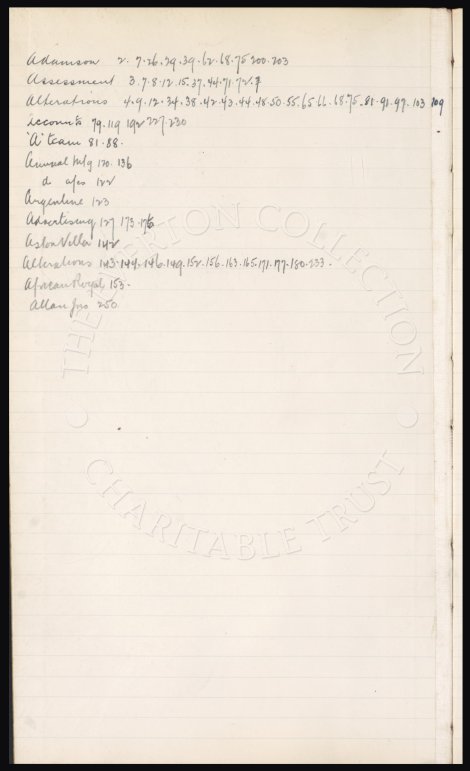 Adamson 2. 7. 26. 29. 39. 62. 68. 75. 200. 203
Assessment 3. 7. 8. 12. 15. 37. 44. 71. 72.
Alterations 4. 9. 12. 34. 38. 42. 43. 44. 48. 50. 55. 65. 66. 68. 75. 81. 91. 97. 103 109
Accounts 79. 119 192 227. 230
"A" team 81. 88.
Annual Mtg 120. 136
d 122
Argentine 123
Advertising 127 173. 176
Aston Villa 142
Alterations 143. 144. 146. 149. 152. 156. 163. 165. 171. 177. 180. 233.
African Royal 153.
Allan Jas 250
THE EVERTON COLLECTION
CHARITABLE TRUST